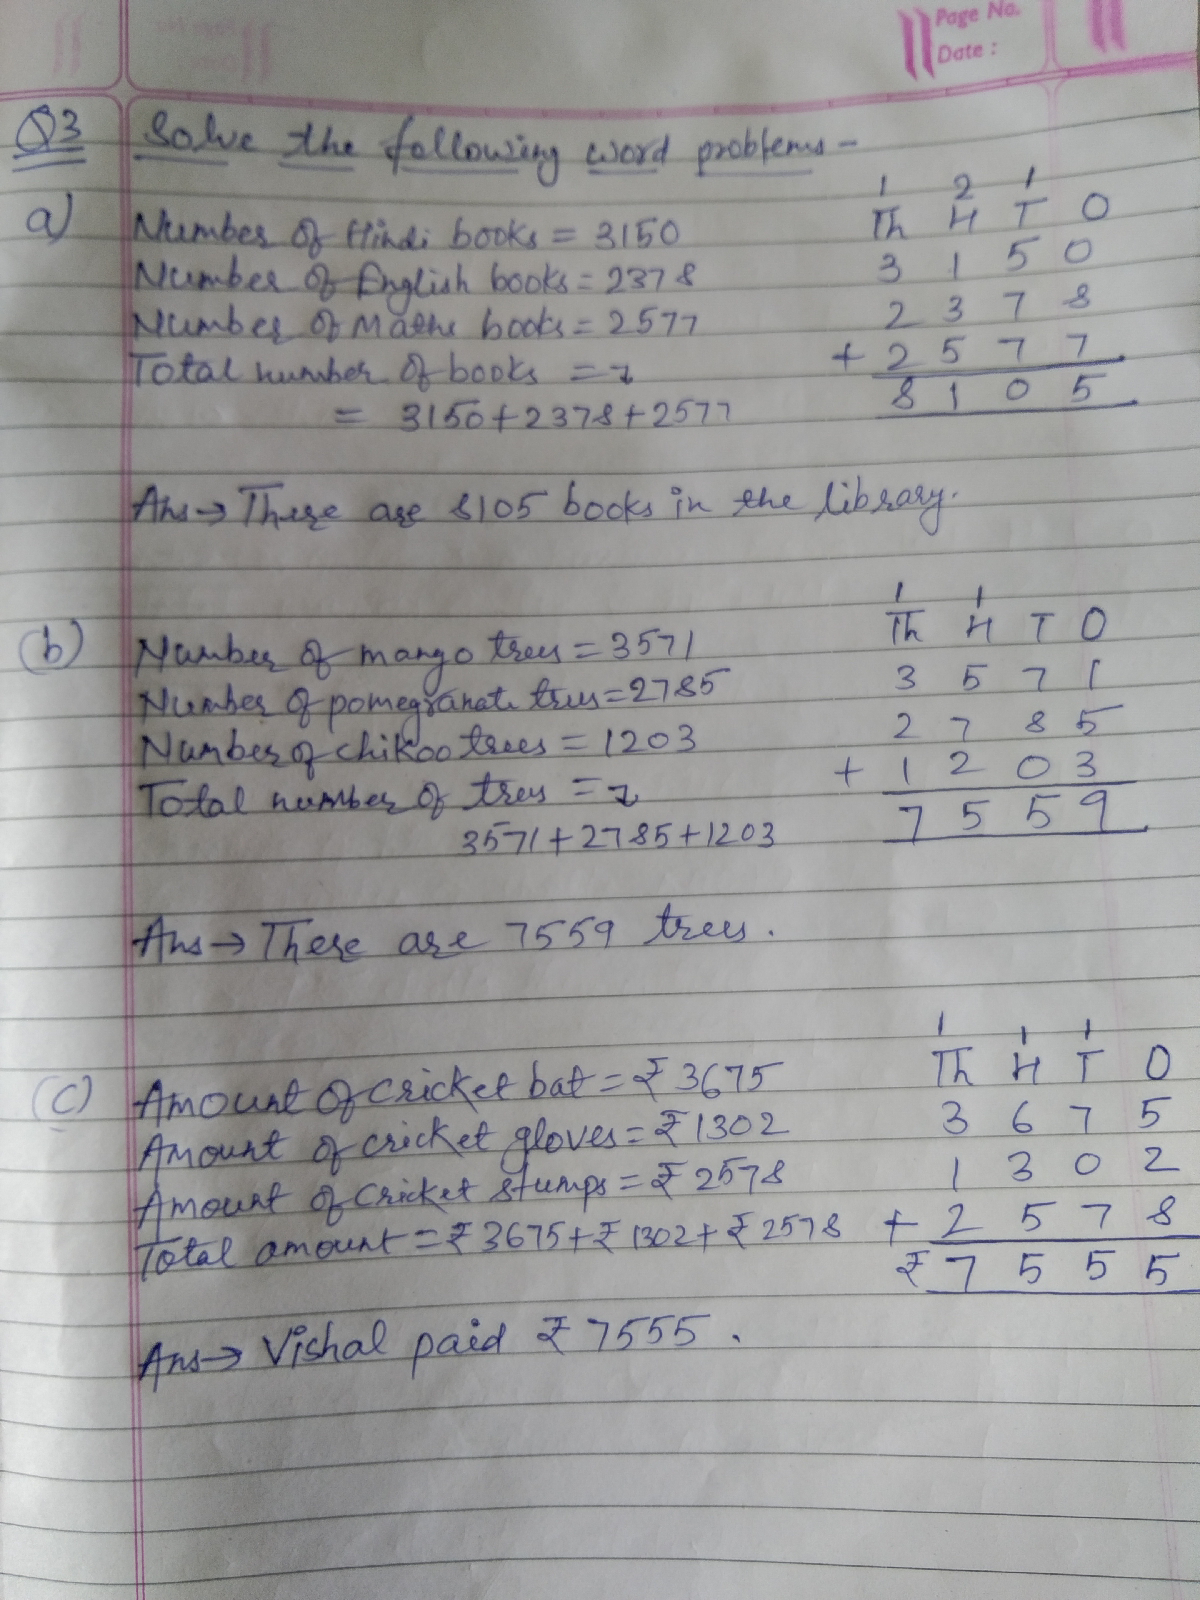 Page No.
Date :
Q3 Solve the following word problems -
1 2 1
Th H T O
a) Number of Hindi books = 3150
3 1 5 0
Number of English books = 2378
2 3 7 8
Number of Maths books = 2577
+ 2 5 7 7
Total number of books =
8 1 0 5
= 3150+2378+2577
Ans → There are 8105 books in the library.
1 1
Th H T O
(b) Number of mango trees = 3571
3 5 7 1
Number of pomegranate trees = 2785
2 7 8 5
Number of chikoo trees = 1203
+ 1 2 0 3
Total number of trees =
7 5 5 9
3571+2785+1203
Ans → There are 7559 trees.
1 1 1
Th H T O
(c) Amount of cricket bat = ₹ 3675
3 6 7 5
Amount of cricket gloves = ₹ 1302
1 3 0 2
Amount of cricket stumps = ₹ 2578
+ 2 5 7 8
Total amount = ₹ 3675+ ₹ 1302+ ₹ 2578
₹ 7 5 5 5
Ans → Vishal paid ₹ 7555.